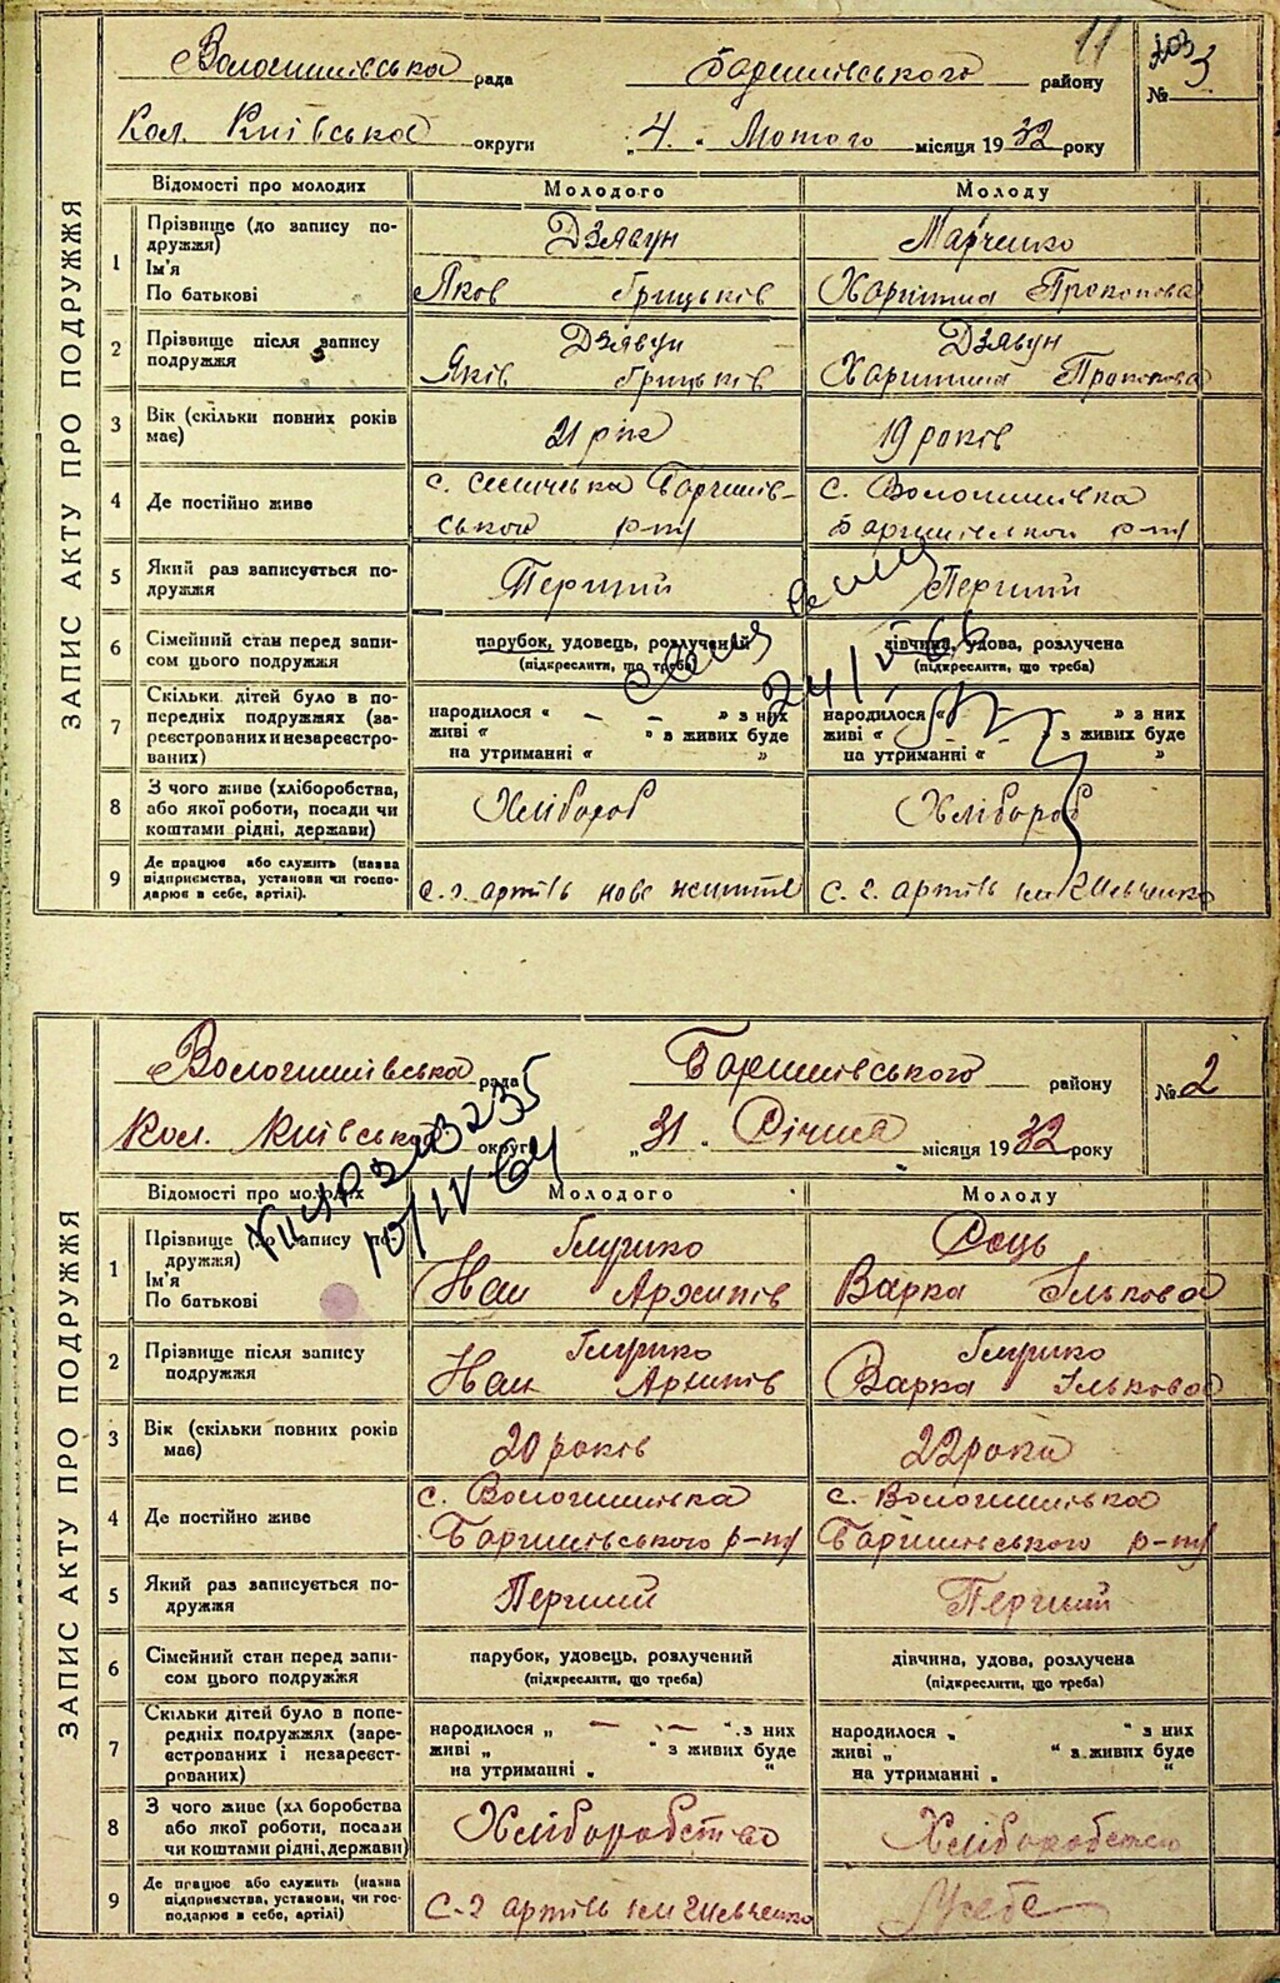 11
Волошинівська рада Баришівського району № 3
Кол. Київська округи „4." Лютого місяця 1932 року
ЗАПИС АКТУ ПРО ПОДРУЖЖЯ
Відомості про молодих Молодого Молоду
1 Прізвище (до запису по-
дружжя) Дзявун Марченко
Ім'я
По батькові Яков Грицьків Харитина Прокопова
2 Прізвище після запису
подружжя Дзявун Дзявун
Яків Грицьків Харитина Прокопова
3 Вік (скільки повних років
має) 21 рік 19 років
4 Де постійно живе с. Селичівка Баришів-
ськой р-ну
с. Волошинівка
Баришівськой р-ну
5 Який раз записується по-
дружжя Перший Перший
6 Сімейний стан перед запи-
сом цього подружжя
парубок, удовець, розлучений
(підкреслити, що треба)
дівчина, удова, розлучена
(підкреслити, що треба)
7 Скільки дітей було в по-
передніх подружжях (за-
реєстрованих и незареєстро-
ваних)
народилося « — — » з них
живі « » з живих буде
на утриманні « »
народилося « » з них
живі « » з живих буде
на утриманні « »
24/V-66
8 З чого живе (хліборобства,
або якої роботи, посади чи
коштами рідні, держави) Хлібороб Хлібороб
9 Де працює або служить (назва
підприємства, установи чи госпо-
дарює в себе, артілі).
с. г. артіль нове життя с. г. артіль ім Шевченко
Волошинівська рада Баришівського району № 2
Кол. Київська округи „31" Січня місяця 1932 року
10/IV 64
ЗАПИС АКТУ ПРО ПОДРУЖЖЯ
Відомості про молодих Молодого Молоду
1 Прізвище (до запису по-
дружжя) Глушко Соць
Ім'я
По батькові Иан Архипів Варка Ількова
2 Прізвище після запису
подружжя Глушко Глушко
Иан Архипів Варка Ількова
3 Вік (скільки повних років
має) 20 років 22 роки
4 Де постійно живе с. Волошинівка
Баришівського р-ну
с. Волошинівка
Баришівського р-ну
5 Який раз записується по-
дружжя Перший Перший
6 Сімейний стан перед запи-
сом цього подружжя
парубок, удовець, розлучений
(підкреслити, що треба)
дівчина, удова, розлучена
(підкреслити, що треба)
7 Скільки дітей було в попе-
редніх подружжях (заре-
єстрованих і незареєст-
рованих)
народилося „ — — “ з них
живі „ “ з живих буде
на утриманні „ “
народилося „ “ з них
живі „ “ з живих буде
на утриманні „ “
8 З чого живе (хл боробства
або якої роботи, посади
чи коштами рідні, держави) Хліборобство Хліборобство
9 Де працює або служить (назва
підприємства, установи, чи гос-
подарює в себе, артілі)
С-г артіль ім Шевченко У себе